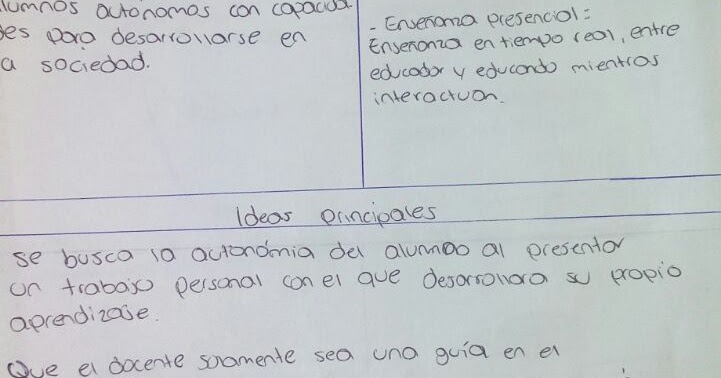 lumnos autónomos con capacida
des para desarrollarse en
a sociedad.
- Enseñanza presencial:
Enseñanza en tiempo real, entre
educador y educando mientras
interactuan.
Ideas principales
se busca la autonómia del alumno al presentar
un trabajo personal con el que desarrollara su propio
aprendizaje.
Que el docente solamente sea una guía en el